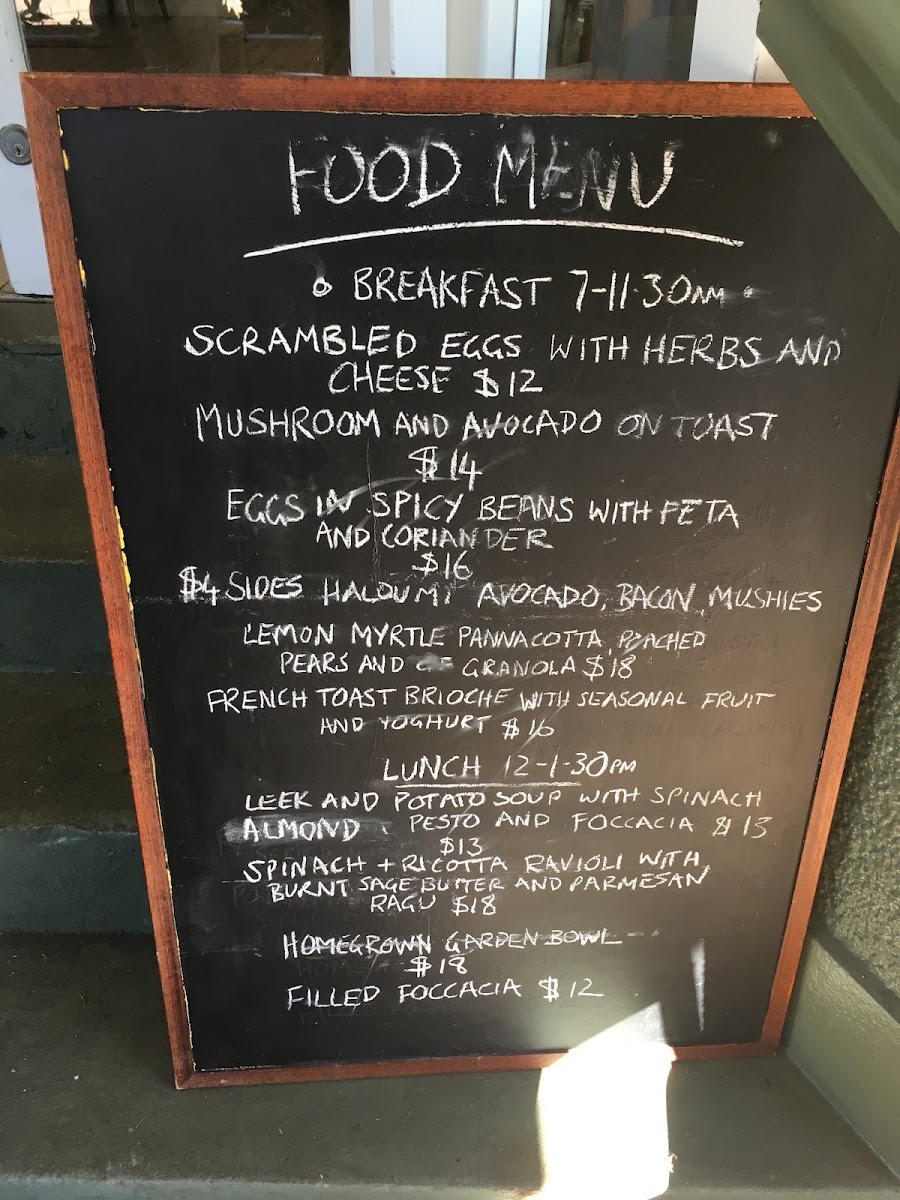 FOOD MENU
BREAKFAST 7-11.30AM
SCRAMBLED EGGS WITH HERBS AND
CHEESE $12
MUSHROOM AND AVOCADO ON TOAST
$14
EGGS IN SPICY BEANS WITH FETA
AND CORIANDER
$16
$4 SIDES HALOUMI AVOCADO, BACON, MUSHIES
LEMON MYRTLE PANNACOTTA, POACHED
PEARS AND GRANOLA $18
FRENCH TOAST BRIOCHE WITH SEASONAL FRUIT
AND YOGHURT $16
LUNCH 12-1-30PM
LEEK AND POTATO SOUP WITH SPINACH
ALMOND PESTO AND FOCCACIA $13
$13
SPINACH + RICOTTA RAVIOLI WITH
BURNT SAGE BUTTER AND PARMESAN
RAGU $18
HOMEGROWN GARDEN BOWL
$18
FILLED FOCCACIA $12